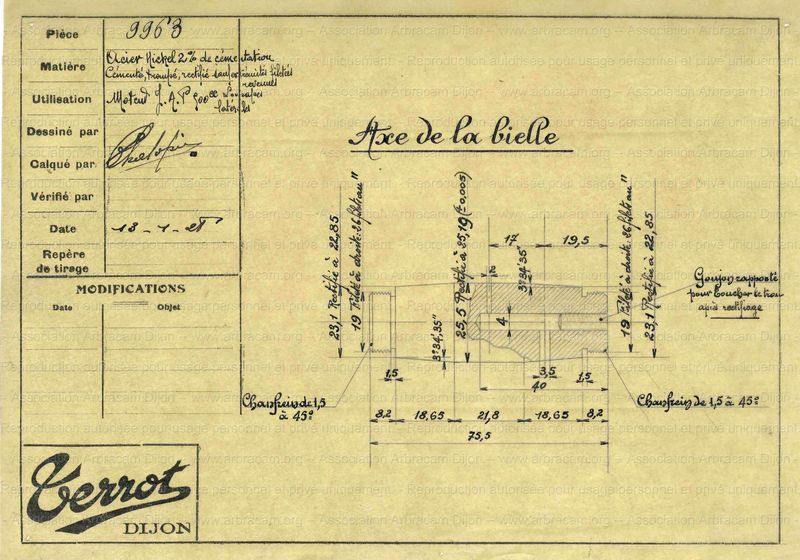 Pièce 9963
Matière Acier Nickel 2% de cémentation
Cémenté, trempé, rectifié sauf extrémités filetés
revenues
Utilisation Moteur J.A.P 500cc Soupapes
latérales
Dessiné par
Calqué par
Vérifié par
Date 13-1-28
Repère
de tirage
MODIFICATIONS
Date Objet
Axe de la bielle
23,1 Rectifié à 22,85
19 Fileté à droite 26 filets au"
25,5 Rectifié à 25,19 (±0,005)
17
19,5
3°34'35"
4
3°34'35"
19 Fileté à droite 26 filets au"
23,1 Rectifié à 22,85
Goujon rapporté
pour boucher le trou
après rectifiage
1,5
3,5
1,5
40
Chanfrein de 1,5
à 45°
Chanfrein de 1,5 à 45°
8,2
18,65
21,8
18,65
8,2
75,5
Terrot
DIJON
Association Arbracam Dijon – www.arbracam.org – Reproduction autorisée pour usage personnel et privé uniquement